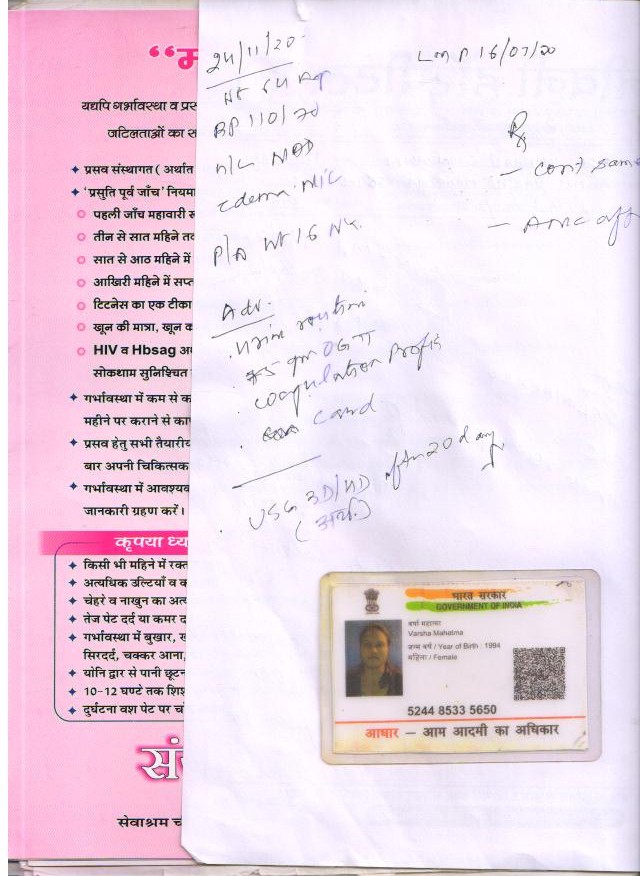 “म
यद्यपि गर्भावस्था व प्रस
जटिलताओं का स
प्रसव संस्थागत ( अर्थात
'प्रसुति पूर्व जाँच' नियमा
पहली जाँच महावारी
तीन से सात महिने तक
सात से आठ महिने में
आखिरी महिने में सप्त
टिटनेस का एक टीका
खून की मात्रा, खून क
HIV व Hbsag
सोकथाम सुनिश्चित
गर्भावस्था में कम से क
महीने पर कराने से का
प्रसव हेतु सभी तैयारीय
बार अपनी चिकित्सक
गर्भावस्था में आवश्यक
जानकारी ग्रहण करें।
कृपया ध्य
किसी भी महिने में रक्त
अत्यधिक उल्टियाँ व क
चेहरे व नाखुन का अत्य
तेज पेट दर्द या कमर द
गर्भावस्था में बुखार,
सिरदर्द, चक्कर आना,
योनि द्वार से पानी छूटन
10-12 घण्टे तक शिश
दुर्घटना वश पेट पर च
सं
सेवाश्रम च
24/11/20
LMP 16/07/20
Wt 64 kg
BP 110/70
Rx
n/c NAD
- cont same
edema Nil
- ANC
P/A Ht 16 Wk.
Adv.
. urine routine
. 75 gm OGTT
. coagulation Profile
. Card
. USG 3D/4D after 20 day
भारत सरकार
GOVERNMENT OF INDIA
वर्षा महात्मा
Varsha Mahatma
जन्म वर्ष / Year of Birth : 1994
महिला / Female
5244 8533 5650
आधार – आम आदमी का अधिकार